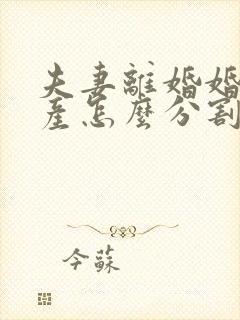 夫妻離婚婚
產怎麼分割
今蘇